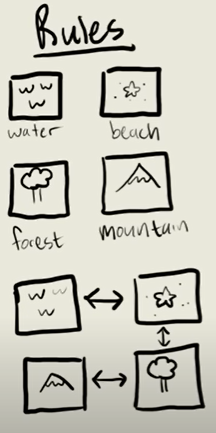 Rules
water
beach
forest
mountain